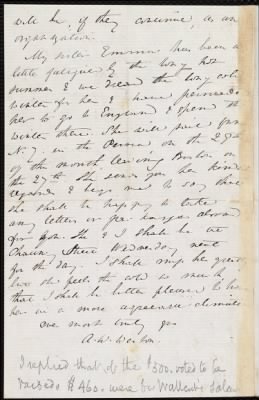 will be, if they continue, as an
organization.
My sister Emma has been a
little fatigued by the long hot
summer & we dread the long cold
winter for her & have persuaded
her to go to England & spend the
winter there. She will sail from
N.Y. in the "Persia" on the 29th
of the month leaving Boston on
the 27th She sends you her kind
regards & begs me to say that
she shall be happy to take
any letters or packages abroad
for you. She & I shall be in
Chauncy Street Wednesday next
for the day. I shall miss her greatly
but she feels the cold so much
that I shall be better pleased to have
her in a more agreeable climate
ever most truly yrs
A. W. Weston.
I replied that of the $500. voted to be
raised, $460. were for Wallcut's salary